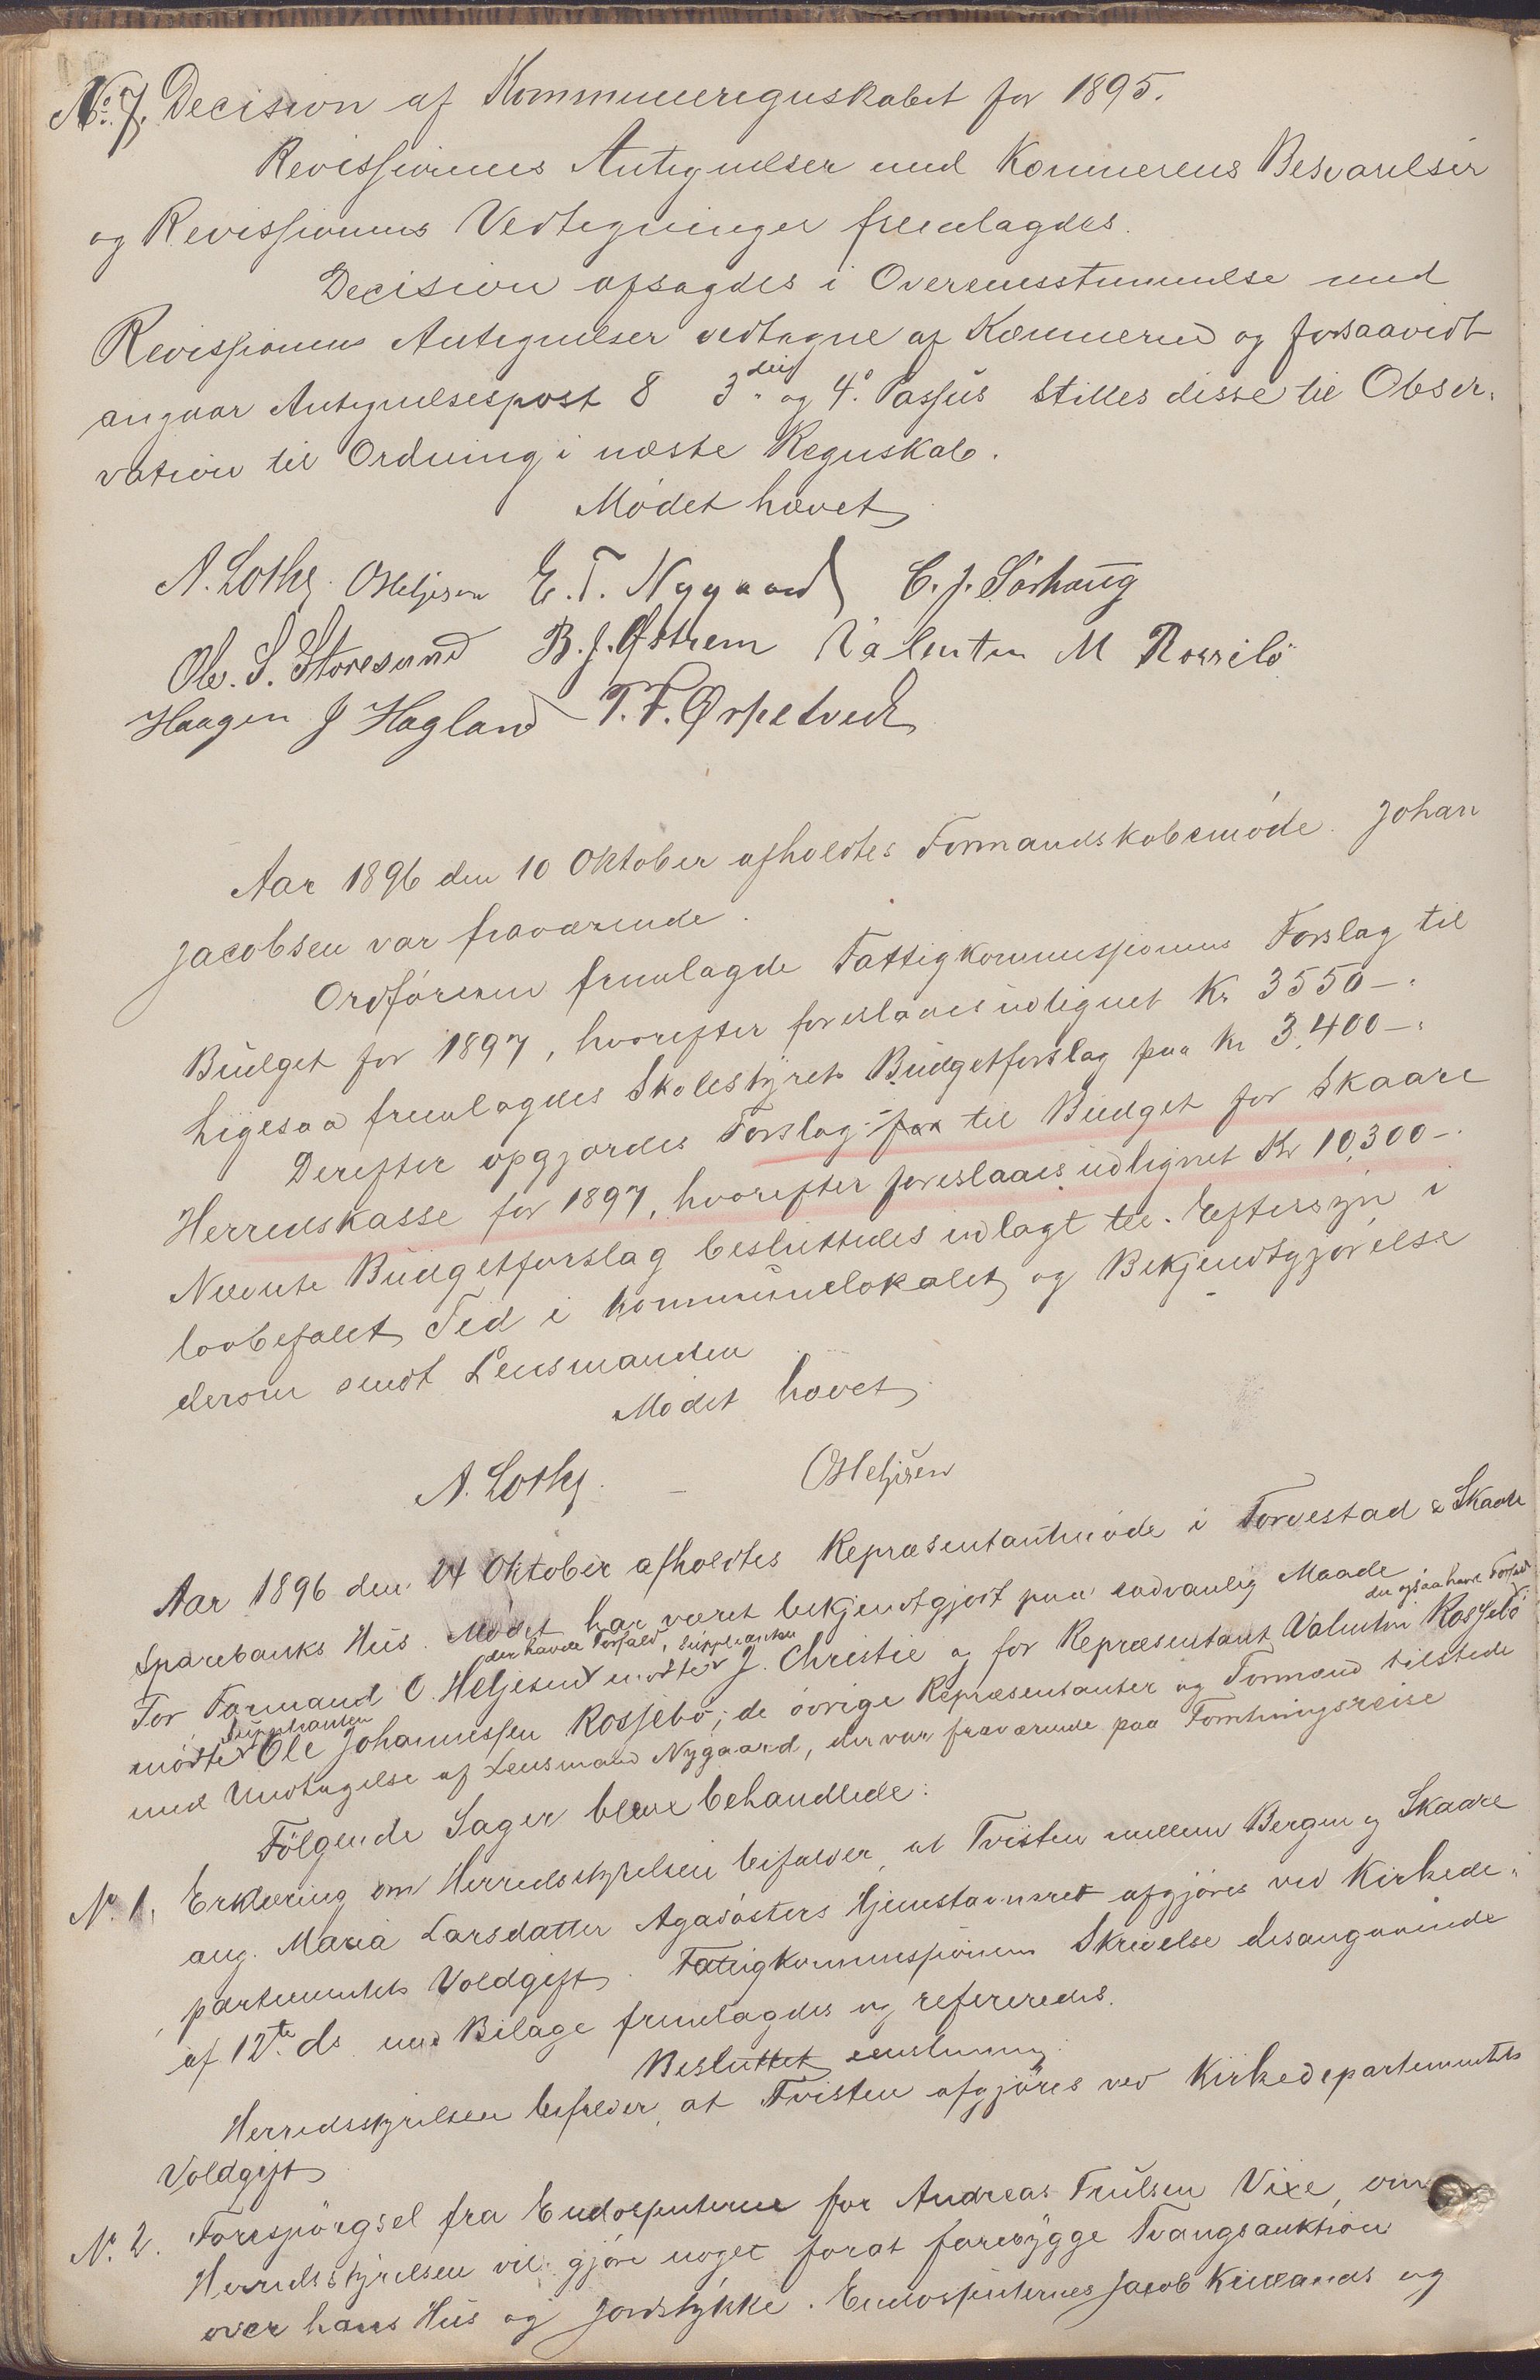 No. 7. Decision af Kommuneregnskabet for 1895.
Revissionens Antegnelser med Kæmnerens Besvarelser
og Revissionens Vedtegninger fremlagdes.
Decision afsagdes i Overensstemmelse med
Revissionens Antegnelser vedtagne af Kæmneren og forsaavidt
angaar Antegnelsespost 8 3die og 4de Passus stilles disse til Obser-
vation til Ordning i næste Regnskab.
Mødet hævet
A. Lothe O Heljesen E. T. Nygaard C. J. Sørhaug
Ole. S. Storesund B. J. Østrem Valentin M Rossebø
Haagen J Hagland T. F. Ørpetvedt
Aar 1896 den 10 Oktober afholdtes Formandskabsmøde. Johan
Jacobsen var fraværende.
Ordføreren fremlagde Fattigkommissionens Forslag til
Budget for 1897, hvorefter foreslaaes udlignet Kr 3550 -.
Ligesaa fremlagdes Skolestyrets Budgetforslag paa Kr 3,400 -.
Derefter opgjordes Forslag paa til Budget for Skaare
Herredskasse for 1897, hvorefter foreslaaes udlignet Kr 10,300 -.
Nævnte Budgetforslag besluttedes udlagt til Eftersyn i
lovbefalet Tid i Kommunelokalet og Bekjendtgjørelse
derom sendt Lensmanden
Mødet hævet
A. Lothe. O Heljesen
Aar 1896 den 24 Oktober afholdtes Repræsentantmøde i Torvestad & Skaare
Sparebanks Hus. Mødet har været bekjendtgjort paa sædvanlig Maade
der havde Forfald, suppleanten der ogsaa havde Forfald
For Formand O. Heljesen mødte J. Christie og for Repræsentant Valentin Rossebø
suppleanten
mødte Ole Johannessen Rossebø; de øvrige Repræsentanter og Formænd tilstede
med Undtagelse af Lensmand Nygaard, der var fraværende paa Forretningsreise
Følgende Sager bleve behandlede:
No. 1. Erklæring om Herredsstyrelsen bifalder, at Tvisten mellem Bergen og Skaare
ang. Maria Larsdatter Agasøsters Hjemstavnsret afgjøres ved Kirkede-
partementets Voldgift. Fattigkommissionens Skrivelse desangaaende
af 12te ds med Bilage fremlagdes og refereredes.
Besluttet enstemmig.
Herredsstyrelsen bifalder, at Tvisten afgjøres ved Kirkedepartementets
Voldgift
No. 2. Forespørgsel fra Endossenterne for Andreas Trulsen Vixe, om
Herredsstyrelsen vil gjøre noget forat forebygge Tvangsauktion
over hans Hus og Jordstykke. Endossenternes Jacob Kiellands og